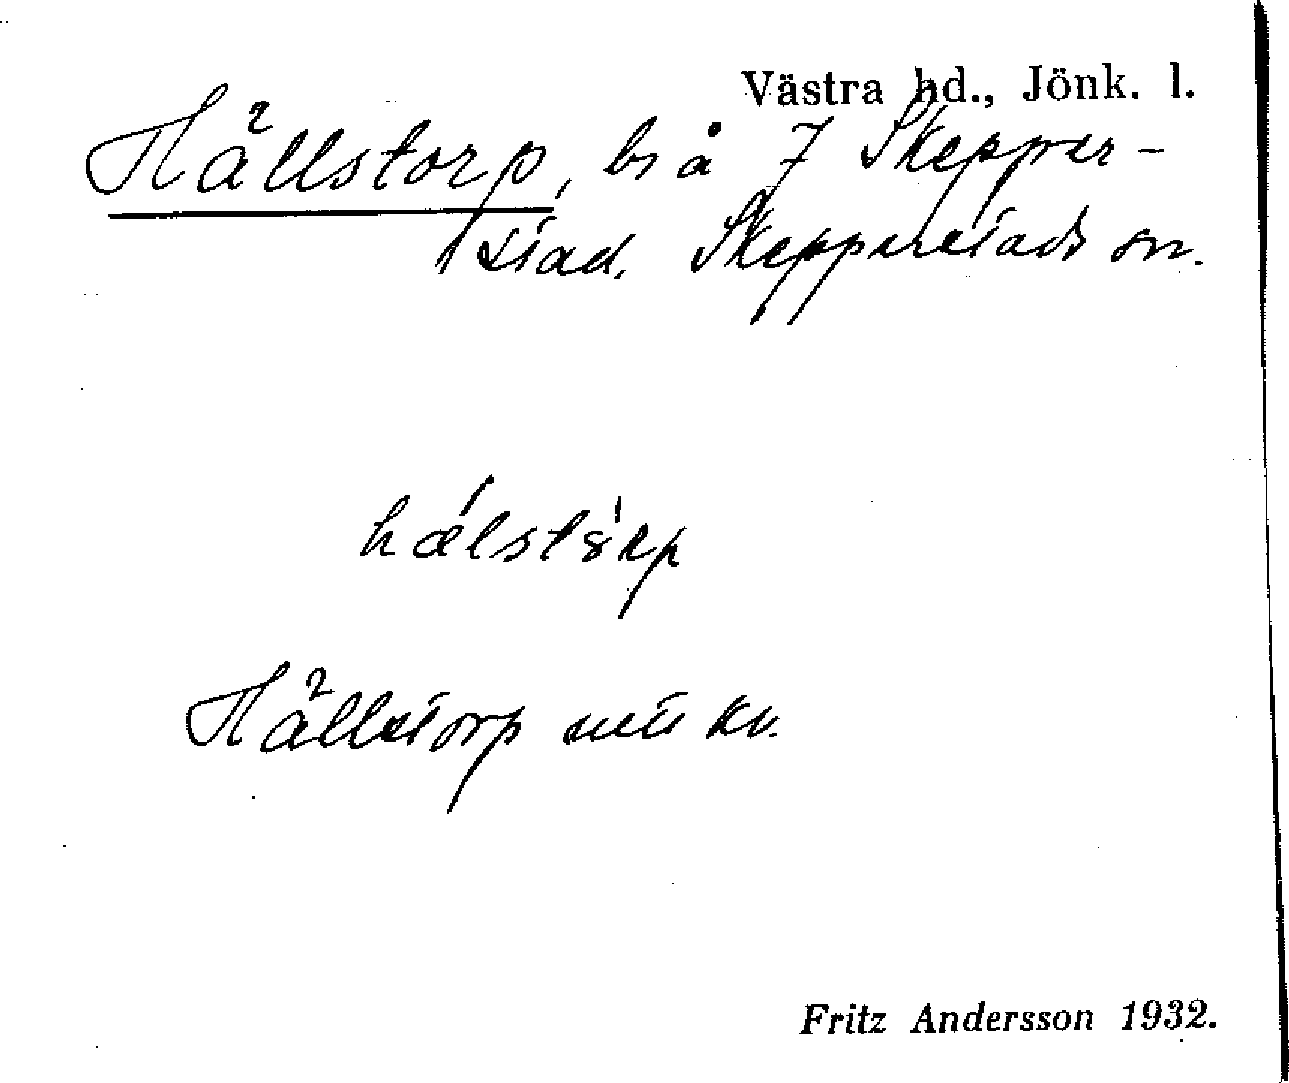 Västra hd., Jönk. l.
Hällstorp, bs å 7 Skepper-
stad, Skepperstads sn.
hælstȧrp
Hällstorp mtl kv.
Fritz Andersson 1932.